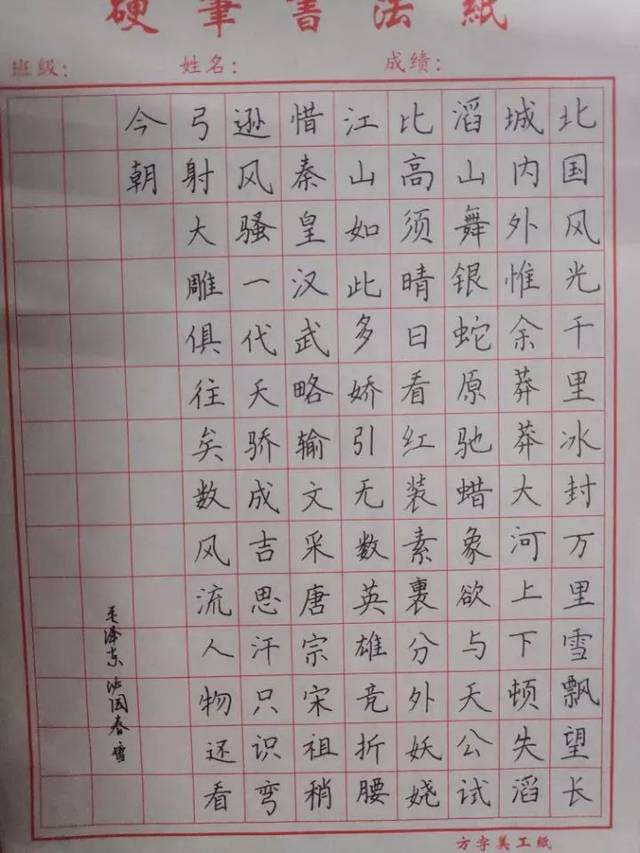 硬筆書法紙
班級： 姓名： 成績：
北国风光千里冰封万里雪飘望长
城内外惟余莽莽大河上下顿失滔
滔山舞银蛇原驰蜡象欲与天公试
比高须晴日看红装素裹分外妖娆
江山如此多娇引无数英雄竞折腰
惜秦皇汉武略输文采唐宗宋祖稍
逊风骚一代天骄成吉思汗只识弯
弓射大雕俱往矣数风流人物还看
今朝
毛泽东 沁园春 雪
方字美工紙